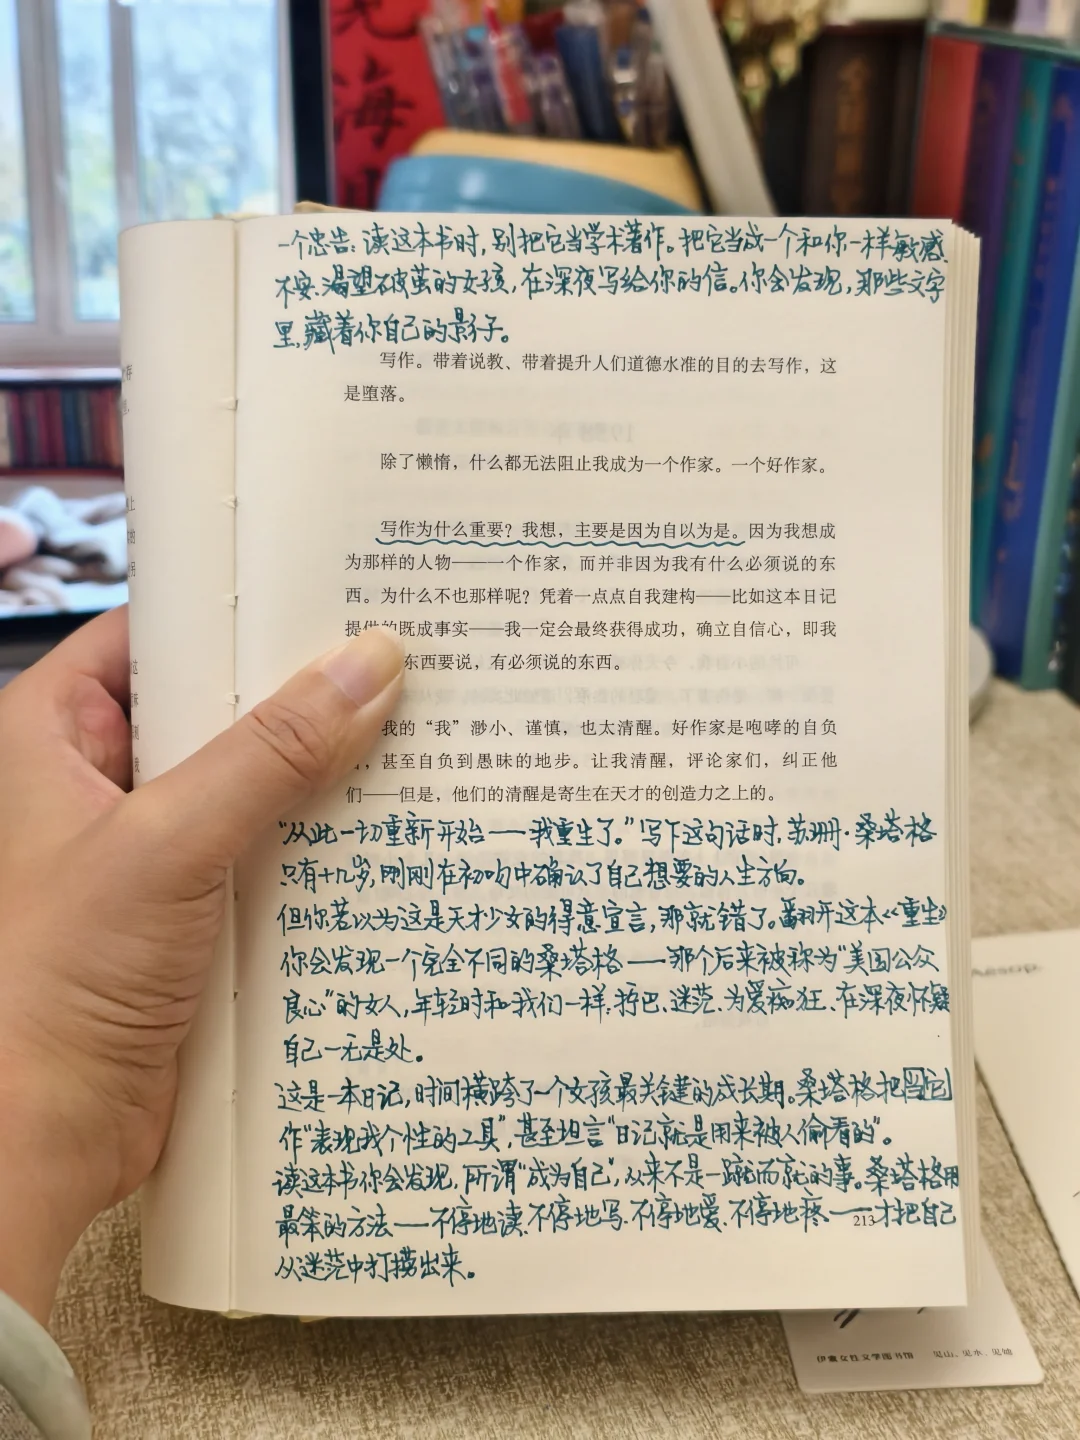 海
一个忠告：读这本书时，别把它当学术著作。把它当成一个和你一样敏感、
不安、渴望破茧的女孩，在深夜写给你的信。你会发现，那些文字
里，藏着你自己的影子。
写作。带着说教、带着提升人们道德水准的目的去写作，这
是堕落。
除了懒惰，什么都无法阻止我成为一个作家。一个好作家。
写作为什么重要？我想，主要是因为自以为是。因为我想成
为那样的人物——一个作家，而并非因为我有什么必须说的东
西。为什么不也那样呢？凭着一点点自我建构——比如这本日记
提供的既成事实——我一定会最终获得成功，确立自信心，即我
东西要说，有必须说的东西。
我的“我”渺小、谨慎，也太清醒。好作家是咆哮的自负
，甚至自负到愚昧的地步。让我清醒，评论家们，纠正他
们——但是，他们的清醒是寄生在天才的创造力之上的。
“从此一切重新开始——我重生了。”写下这句话时，苏珊·桑塔格
只有十几岁，刚刚在初吻中确认了自己想要的人生方向。
但你若以为这是天才少女的得意宣言，那就错了。翻开这本《重生》
你会发现一个完全不同的桑塔格——那个后来被称为“美国公众
良心”的女人，年轻时和我们一样：拧巴、迷茫、为爱痴狂、在深夜怀疑
自己一无是处。
这是一本日记，时间横跨了一个女孩最关键的成长期。桑塔格把当它
作“表现我个性的工具”，甚至坦言“日记就是用来被人偷看的”。
读这本书你会发现，所谓“成为自己”，从来不是一蹴而就的事。桑塔格用
最笨的方法——不停地读、不停地写、不停地爱、不停地疼——才把自己
从迷茫中打捞出来。
213
Aesop.
伊童女性文学图书馆 见山、见水、见她